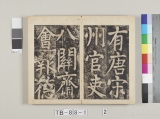 有唐宋
州官吏
八關齋
會報德
TB-88-1
2